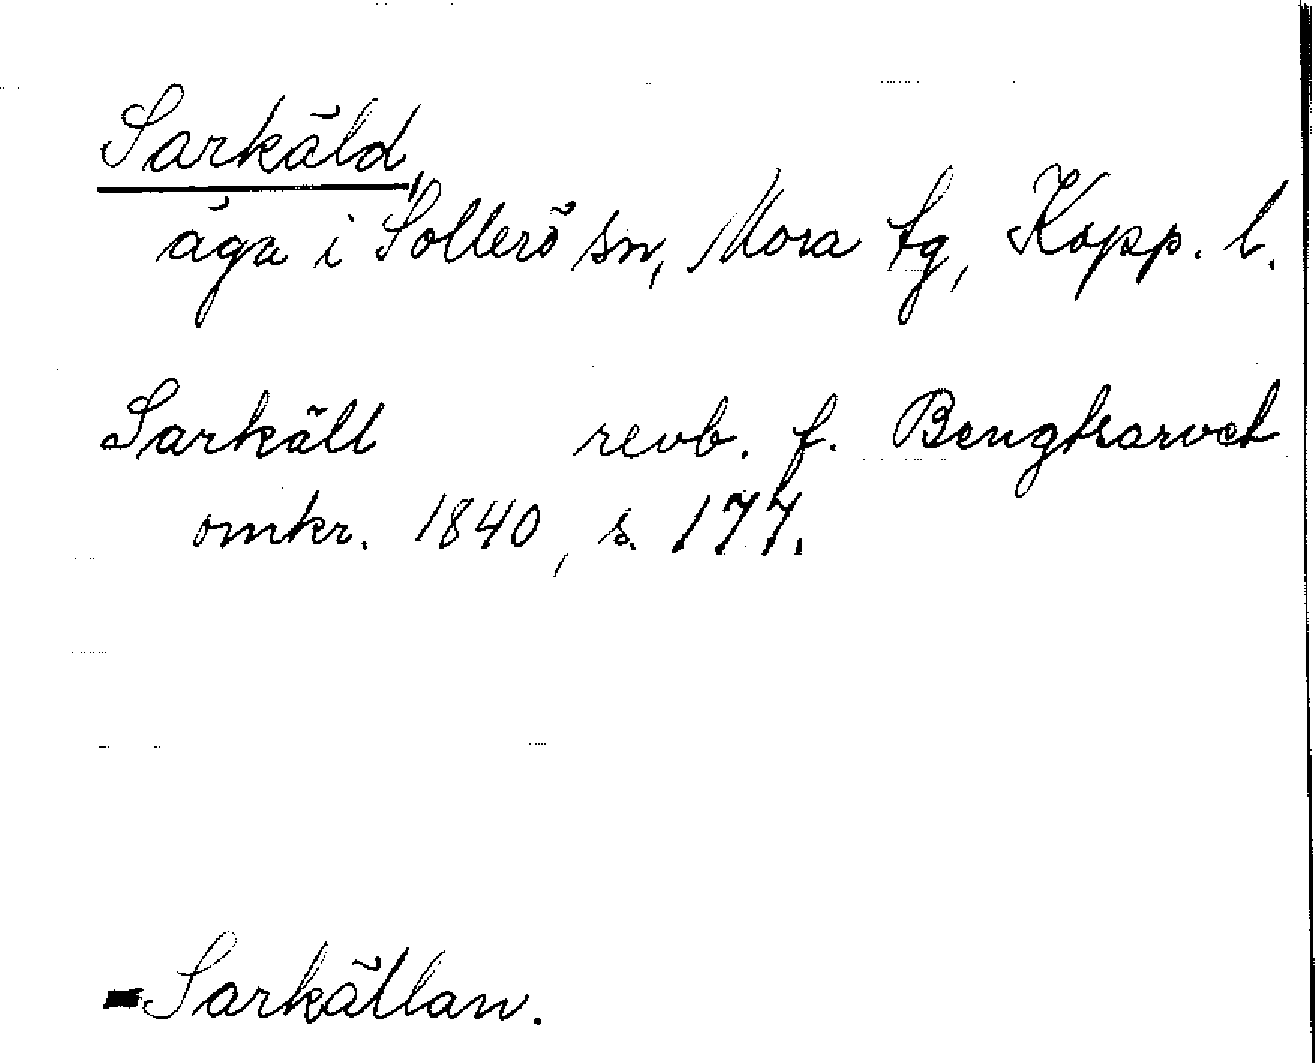 Sarkäld,
äga i Sollerö sn, Mora tg, Kopp. l.
Sarkäll revb. f. Bengtsarvet
omkr. 1840, s. 177.
=Sarkällan.